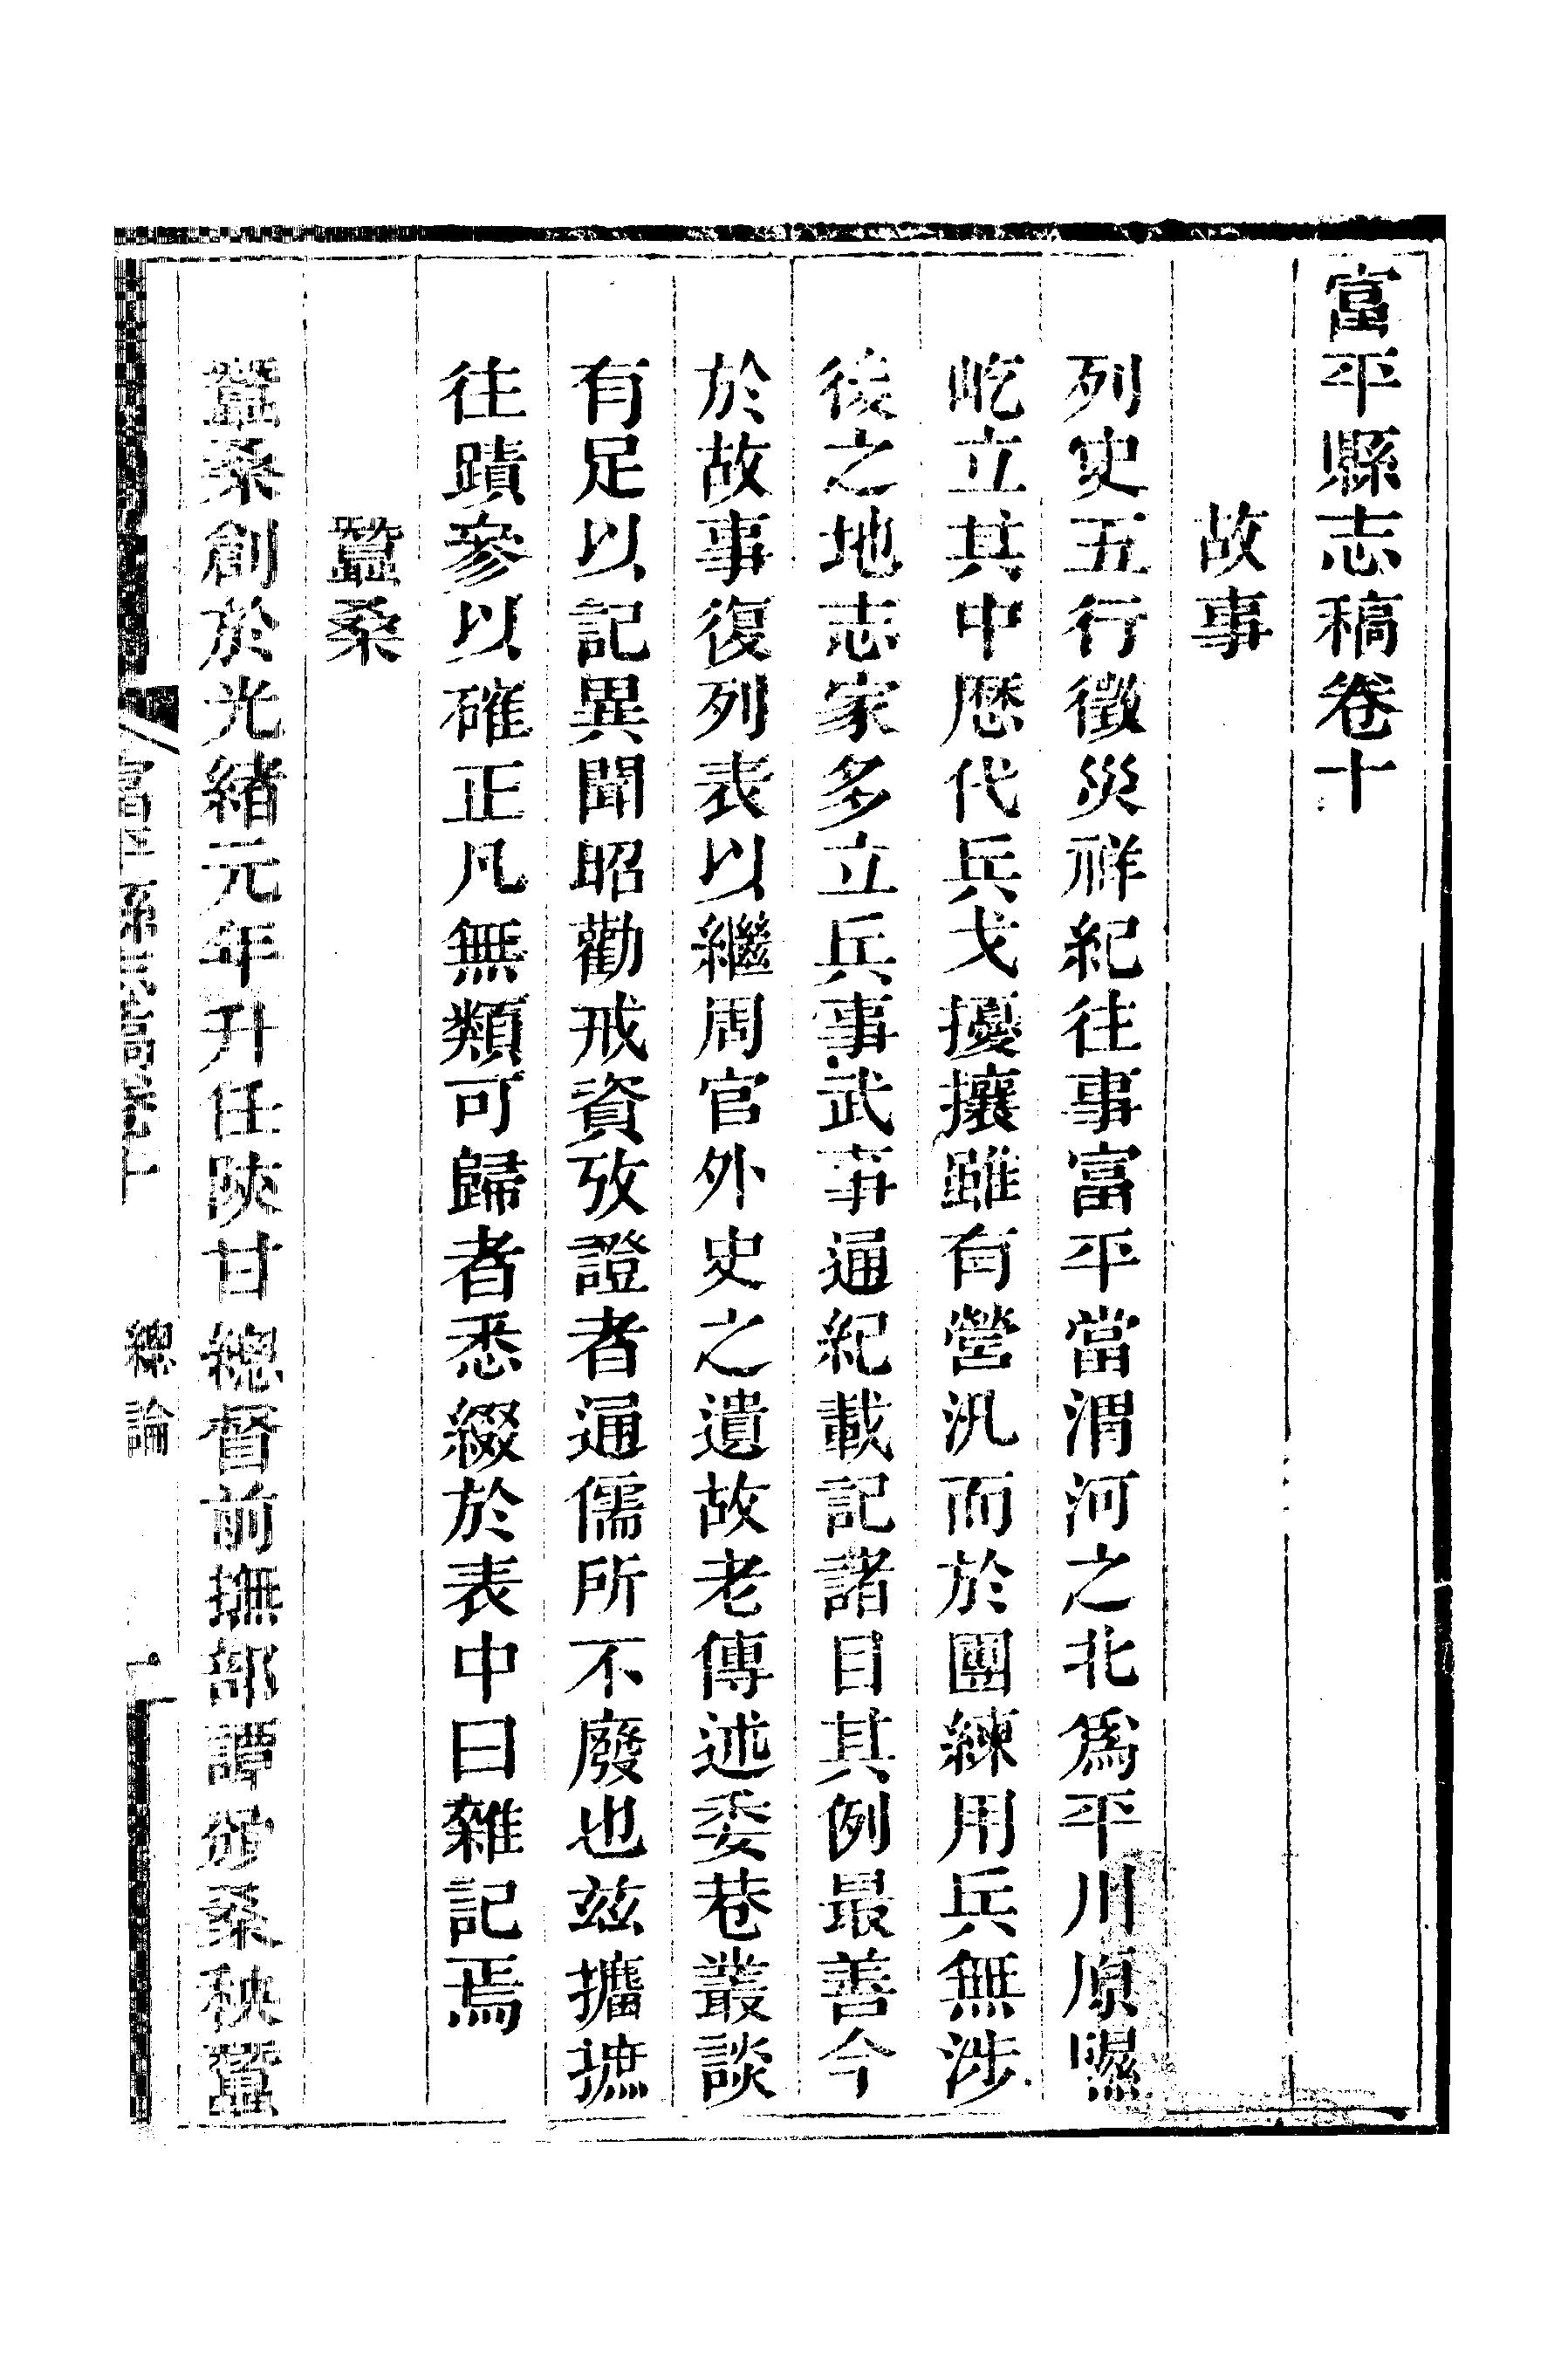 富平縣志稿卷十
故事
列史五行徵災祥紀往事富平當渭河之北爲平川原隰
屹立其中歷代兵戈擾攘雖有營汛而於團練用兵無涉
後之地志家多立兵事武事通紀載記諸目其例最善今
於故事復列表以繼周官外史之遺故老傳述委巷叢談
有足以記異聞昭勸戒資攷證者通儒所不廢也玆攟摭
往蹟參以確正凡無類可歸者悉綴於表中曰雜記焉
蠶桑
蠶桑創於光緒元年升任陝甘總督前撫部譚飭桑秧蠶
富平縣志稿卷十 總論 一